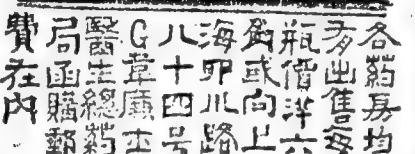 各藥房均
有出售每
瓶價洋六
銀或向上
海卯川路
八十四号
G韋廉士
醫生總药
局函購郵
費在內